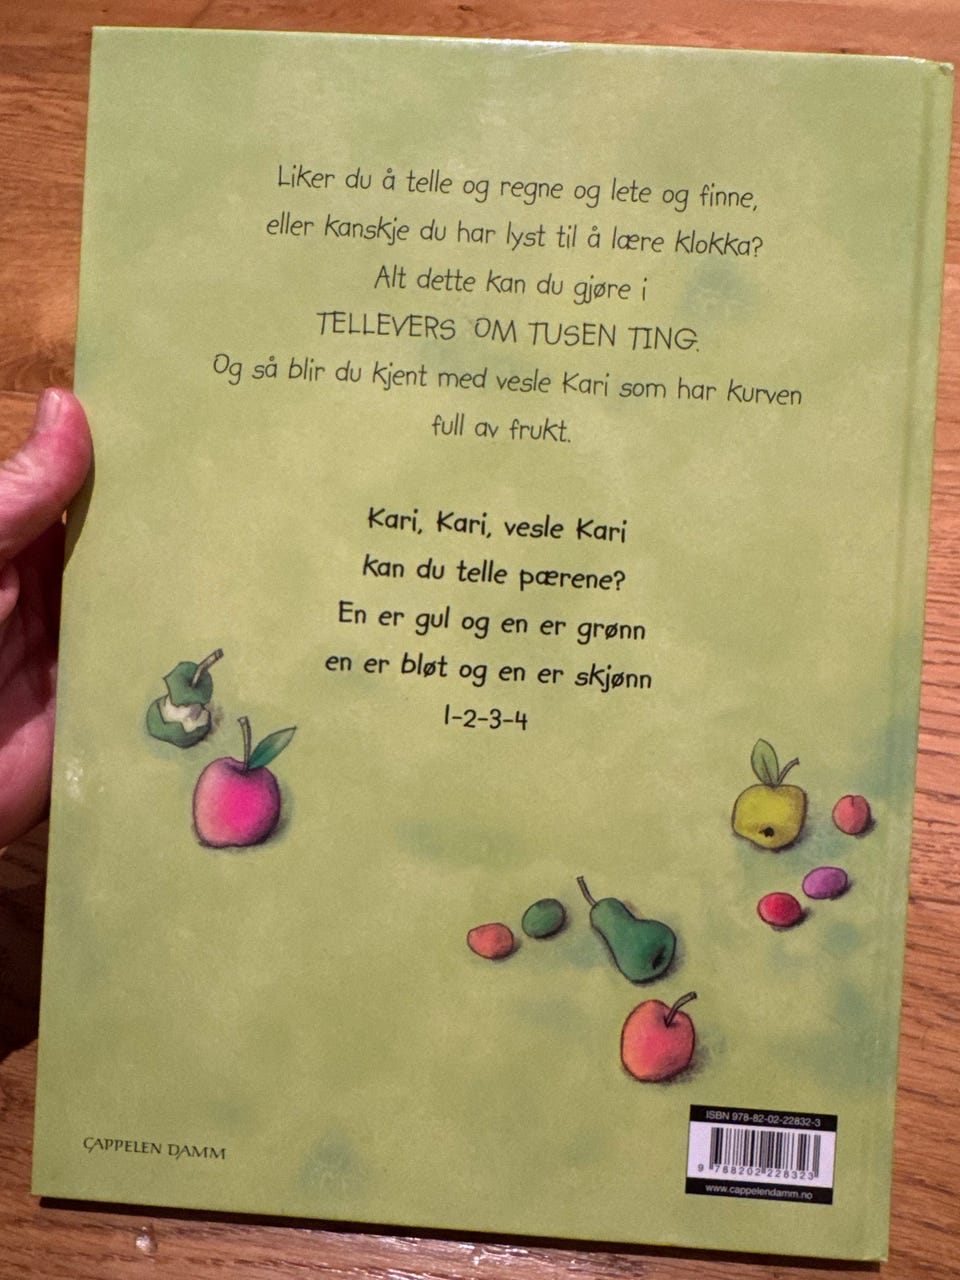 Liker du å telle og regne og lete og finne,
eller kanskje du har lyst til å lære klokka?
Alt dette kan du gjøre i
TELLEVERS OM TUSEN TING.
Og så blir du kjent med vesle Kari som har kurven
full av frukt.
Kari, Kari, vesle Kari
kan du telle pærene?
En er gul og en er grønn
en er bløt og en er skjønn
1-2-3-4
CAPPELEN DAMM
ISBN 978-82-02-22832-3
9 788202 228323
www.cappelendamm.no